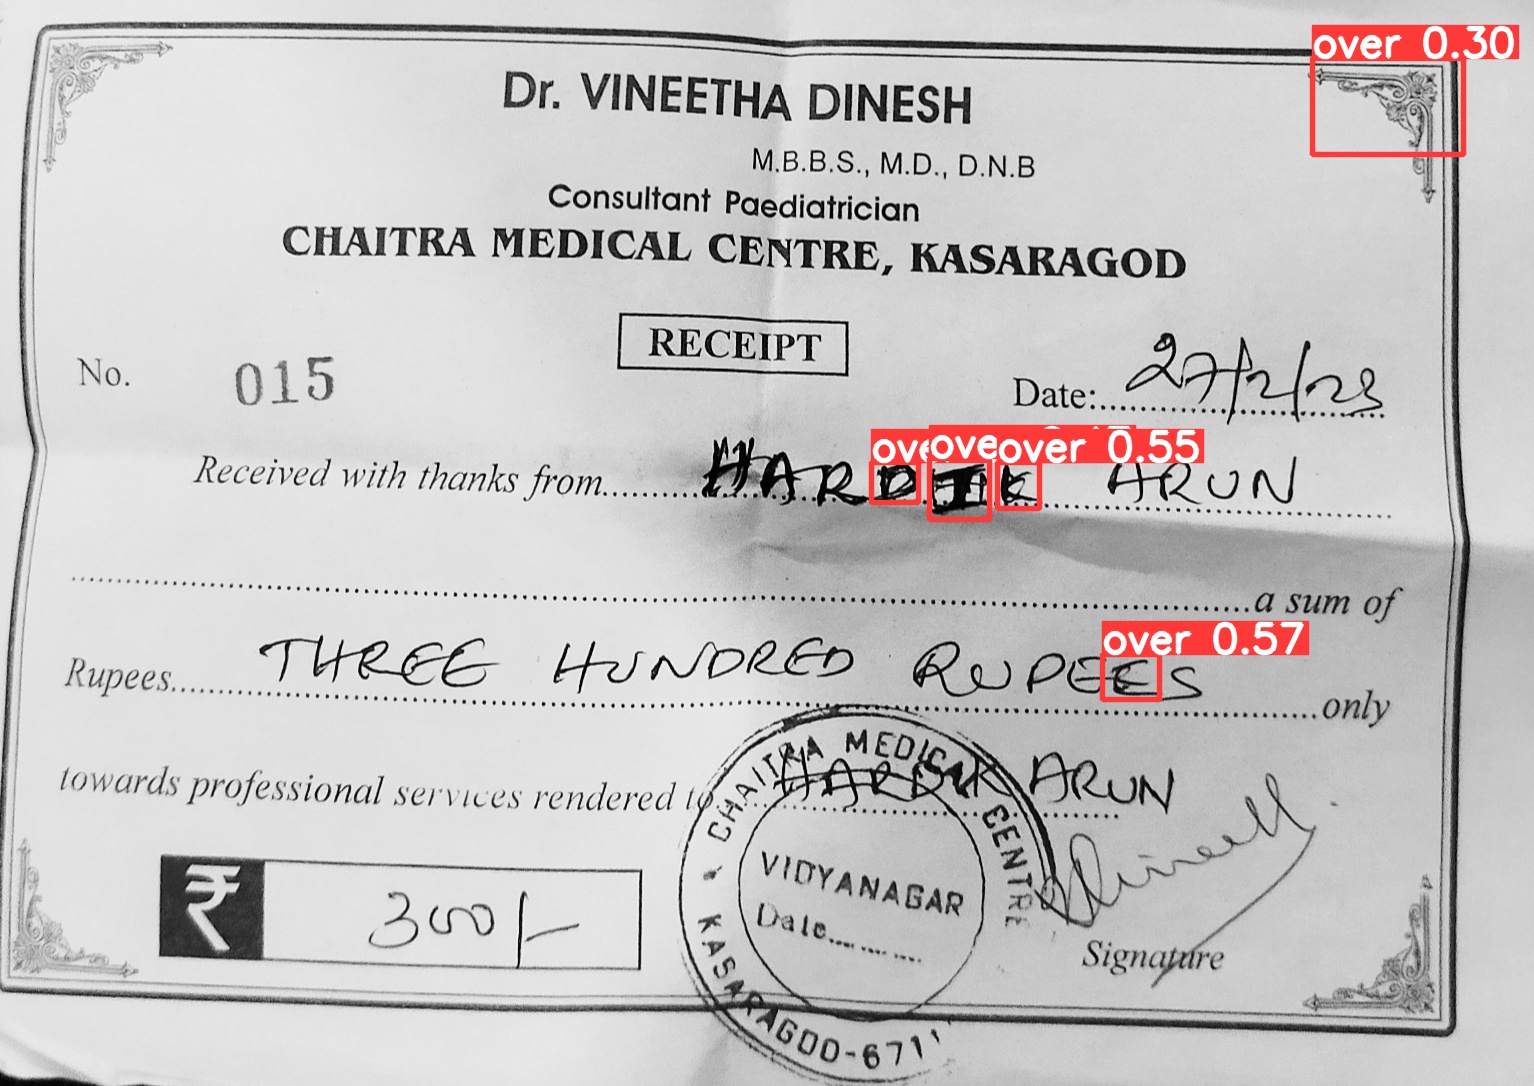 over 0.30
Dr. VINEETHA DINESH
M.B.B.S., M.D., D.N.B
Consultant Paediatrician
CHAITRA MEDICAL CENTRE, KASARAGOD
RECEIPT
No. 015
Date: 27/2/23
ove ove over 0.55
Received with thanks from HARDIK ARUN
a sum of
over 0.57
Rupees THREE HUNDRED RUPEES only
towards professional services rendered to HARDIK ARUN
₹ 300/-
CHAITRA MEDICAL CENTRE
VIDYANAGAR
Date
KASARAGOD-671
Signature